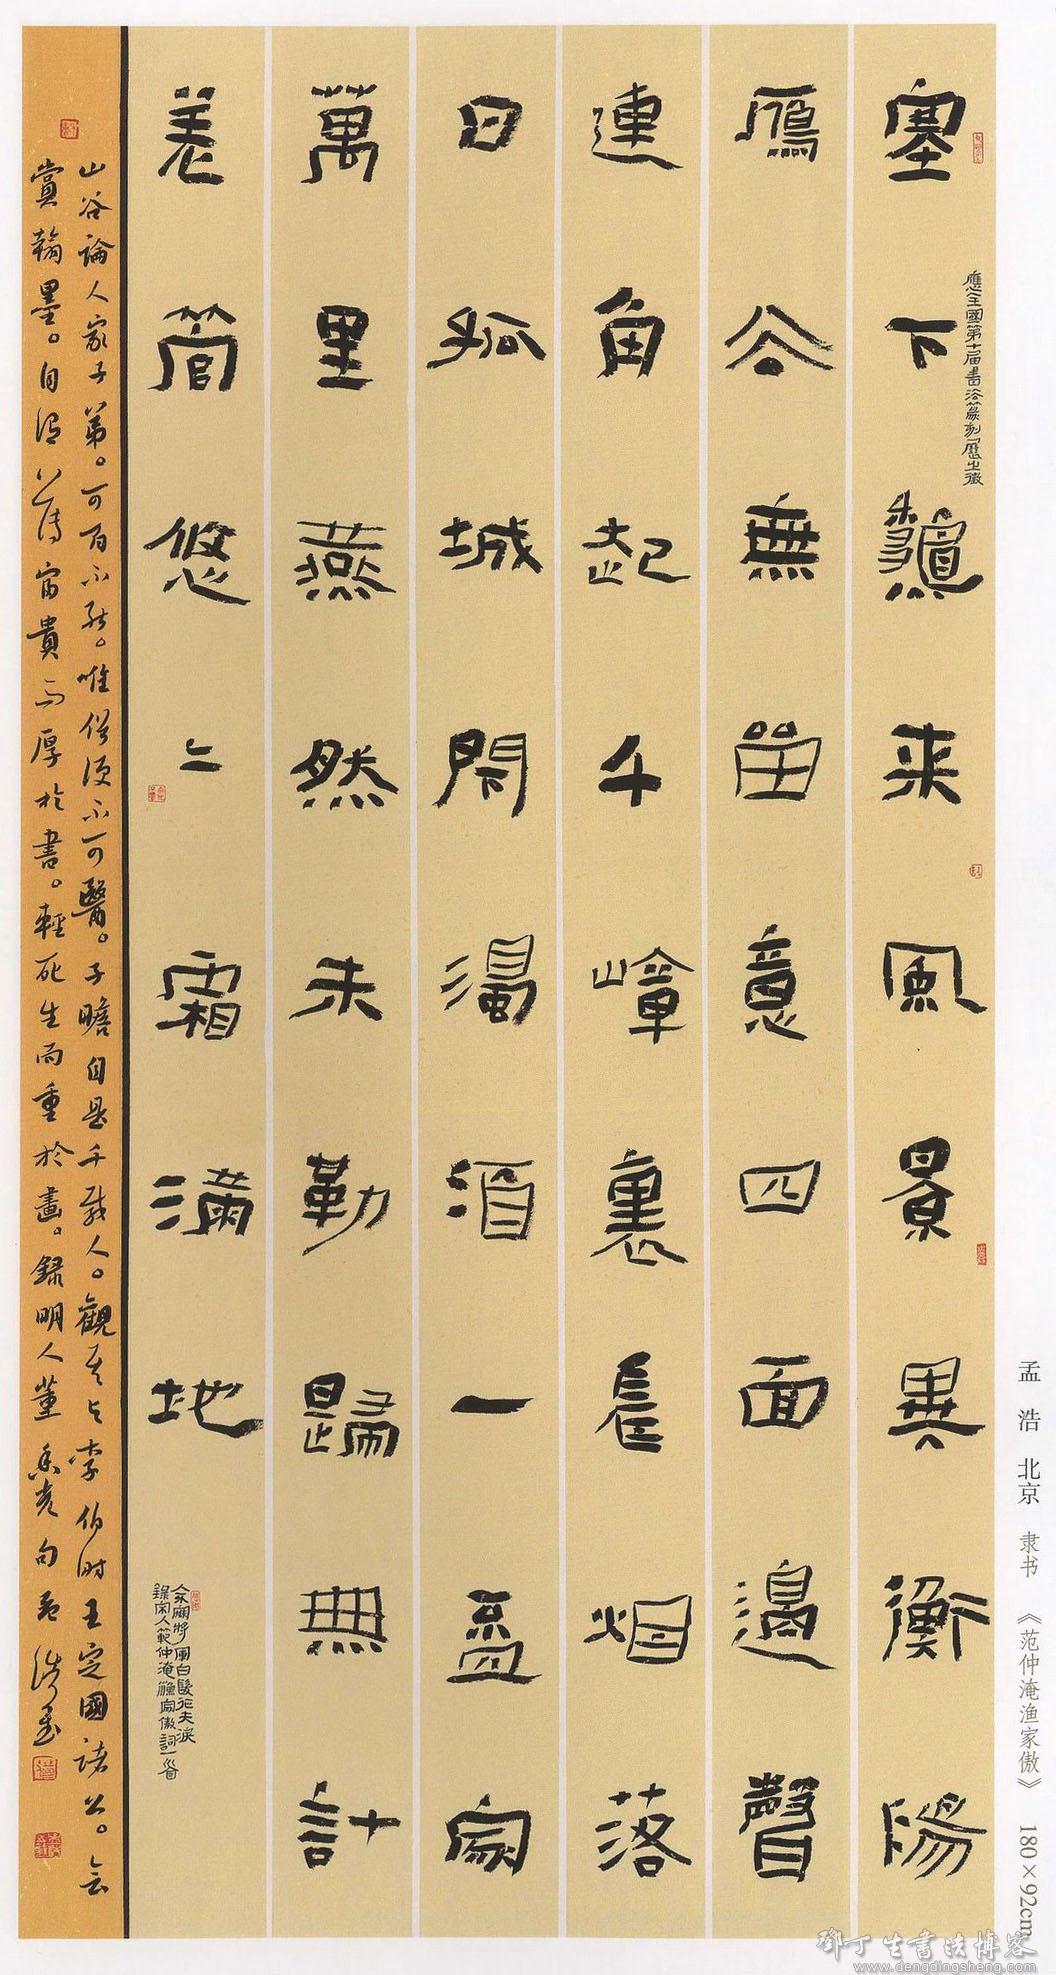 塞下䵻来風景異衡陽
雁去無畱意四面邊聲
連角起千嶂裏長烟落
日孤城閇濁酒一盃家
萬里燕然未勒歸無計
羌管悠〻霜滿地
人不寐將軍白髮征夫淚
錄宋人範仲淹漁家傲詞一首
應全國第十届書法篆刻展之徵
山谷論人家子弟。可百不能。唯俗便不可醫。子瞻自是千載人。觀其與李伯時王定國諸公。
賞翰墨。自得薄富貴而厚於書。輕死生而重於畫。錄明人董香光句孟浩書
孟 浩 北京 隶书 《范仲淹渔家傲》 180×92cm
鄧丁生書法博客
www.dengdingsheng.com